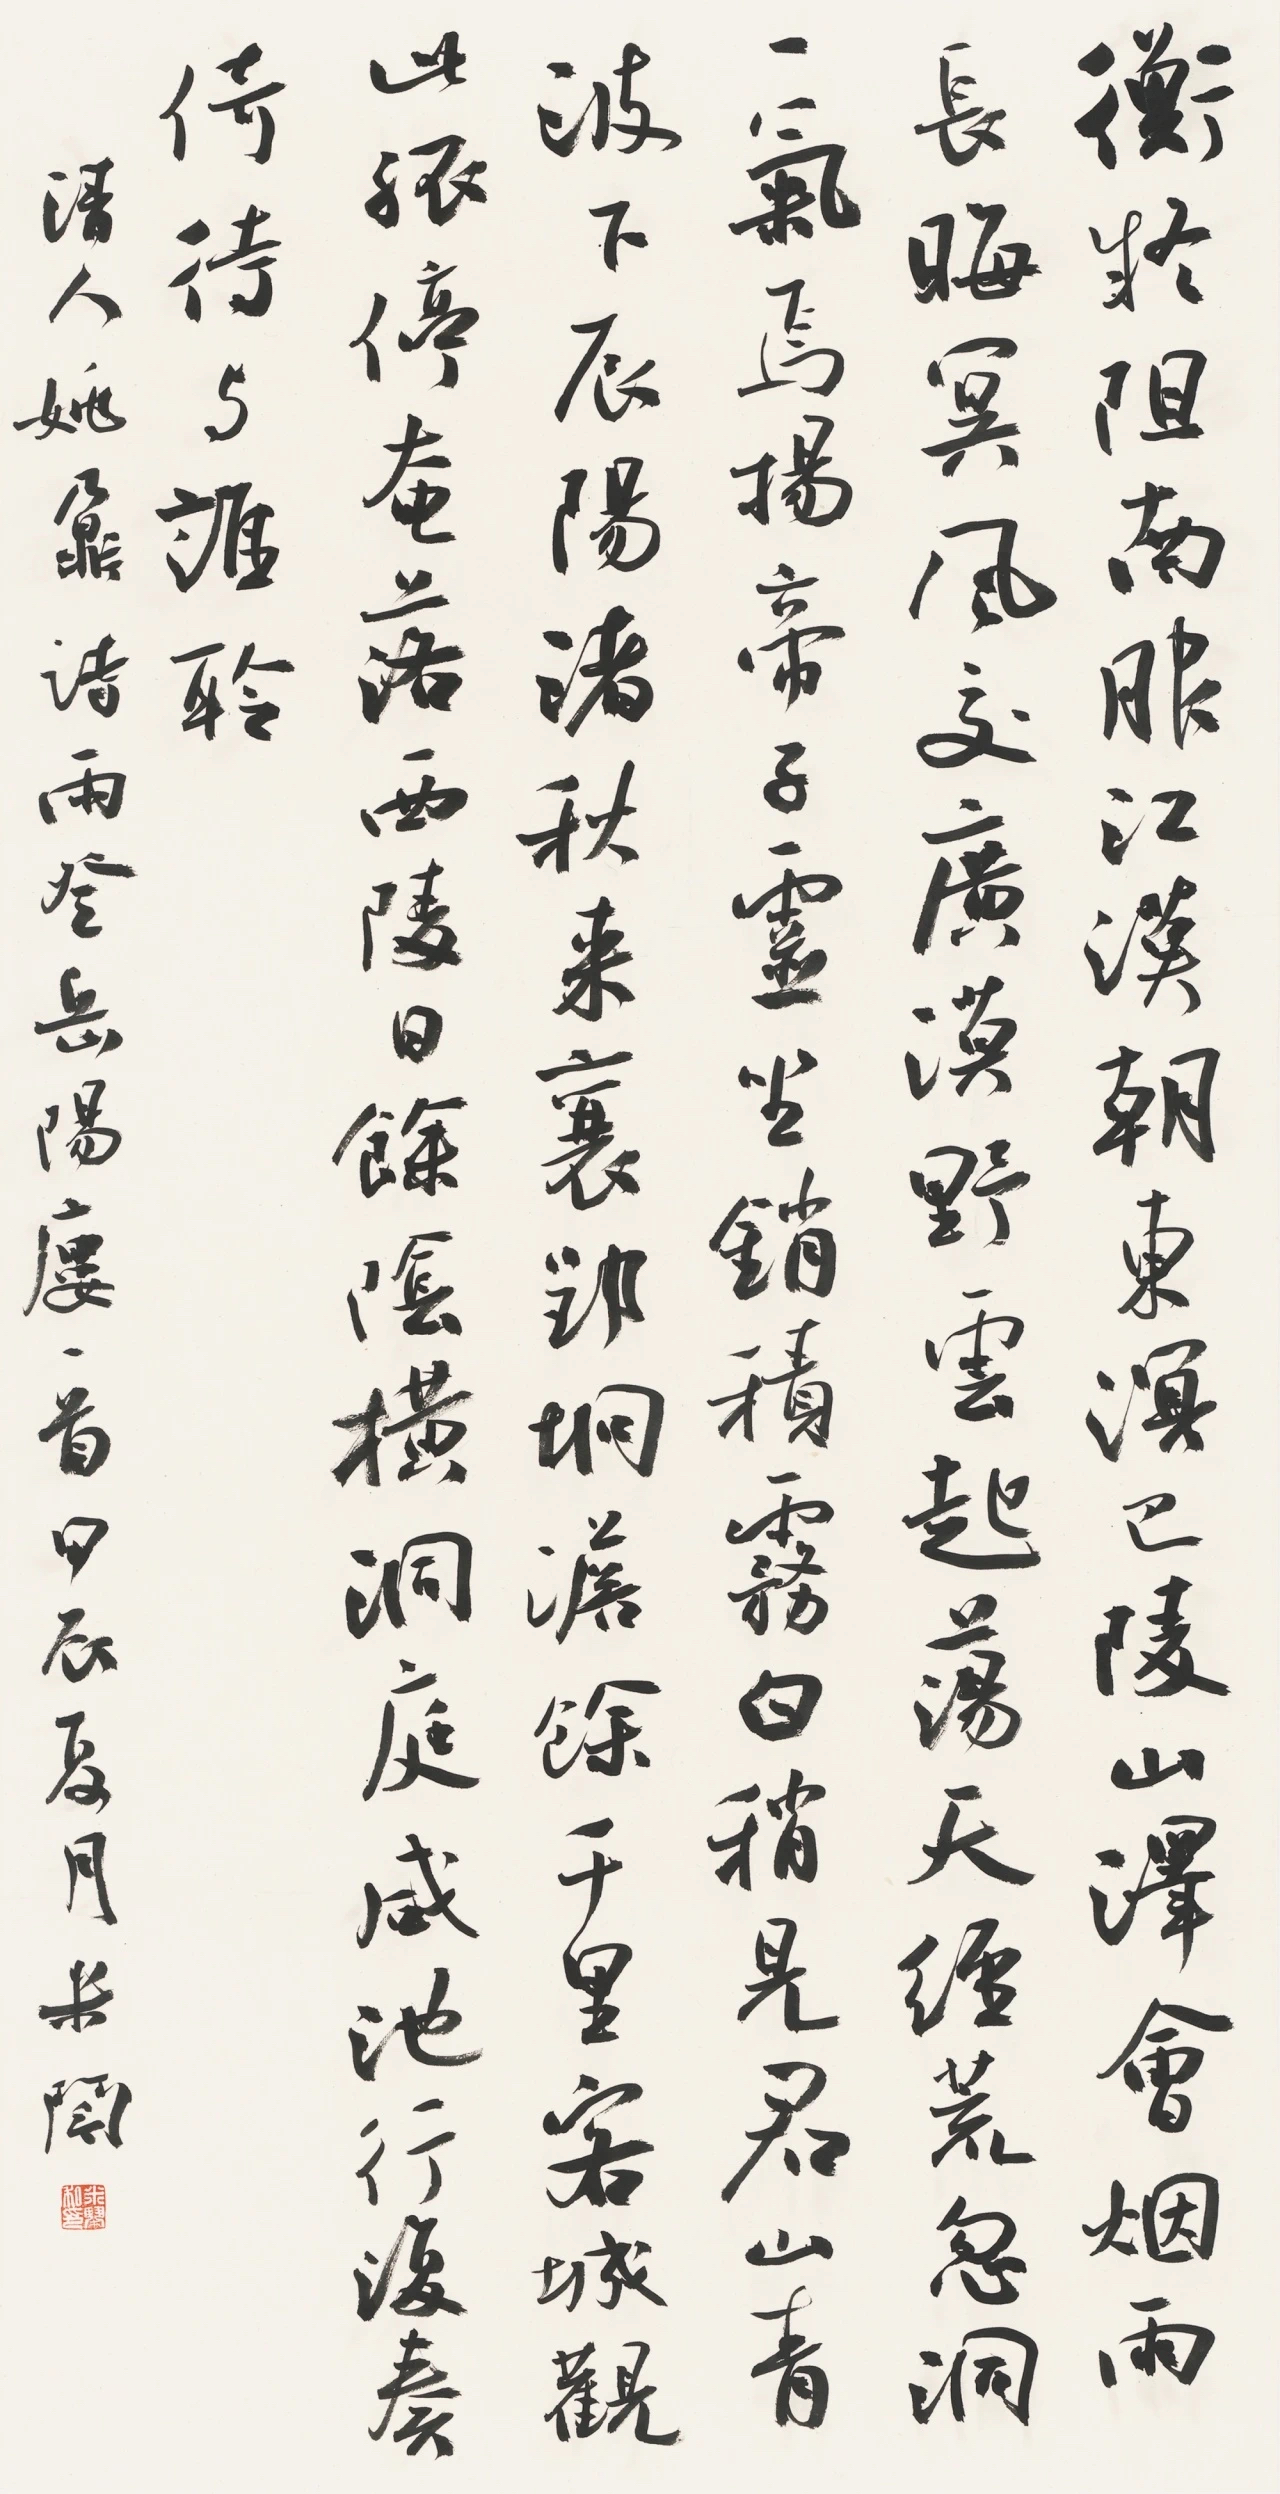 衡疑阻南服江漢朝東溟巴陵山澤會烟雨
長晦冥風交廣漠野雲起蕩天經荒忽洞
一氣焉揚帝子靈坐銷積霧白稍見君山青
波下辰陽渚秋来襄郢坰澹餘千里客城觀
此孤停奄落西陵日餘陰橫洞庭咸池行復奏
倚待与誰聆
清人姚鼐詩雨登岳陽廔一首甲辰夏月米鬧